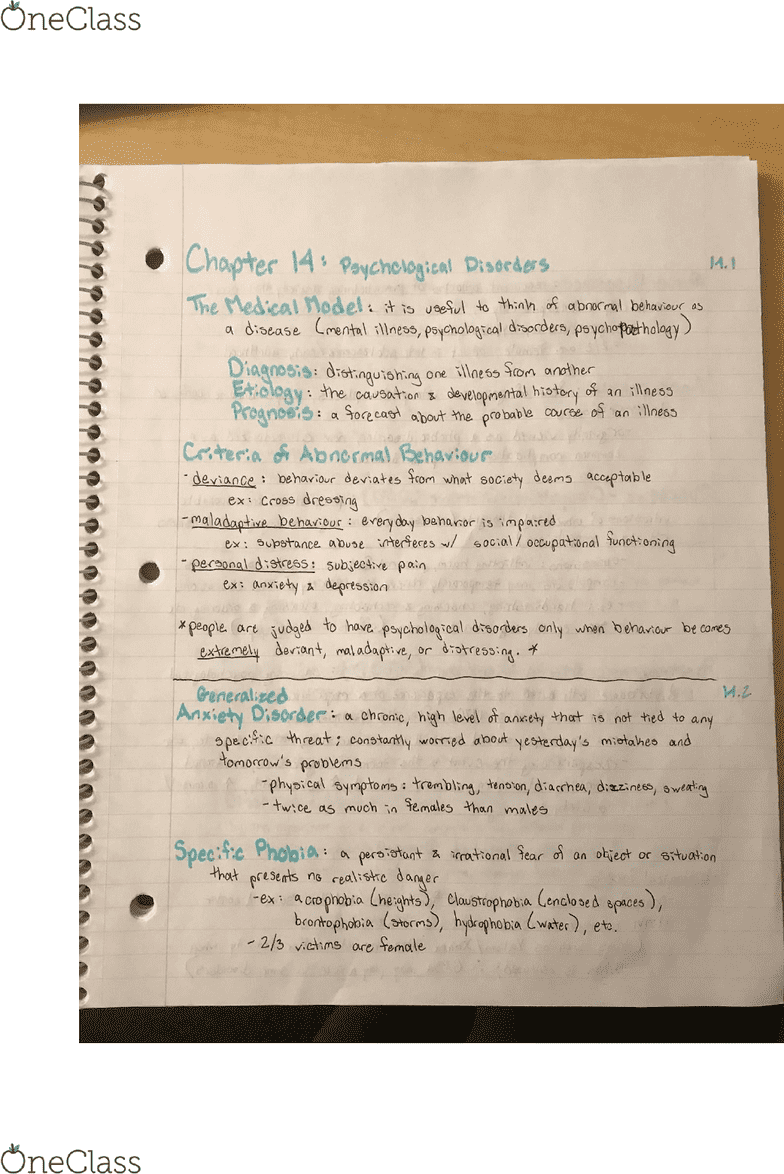 OneClass
Chapter 14: Psychological Disorders 14.1
The Medical Model: it is useful to think of abnormal behaviour as
a disease (mental illness, psychological disorders, psychopathology)
Diagnosis: distinguishing one illness from another
Etiology: the causation & developmental history of an illness
Prognosis: a forecast about the probable course of an illness
Criteria of Abnormal Behaviour
- deviance: behaviour deviates from what society deems acceptable
ex: cross dressing
- maladaptive behaviour: everyday behavior is impaired
ex: substance abuse interferes w/ social/occupational functioning
- personal distress: subjective pain
ex: anxiety & depression
*people are judged to have psychological disorders only when behaviour becomes
extremely deviant, maladaptive, or distressing. *
Generalized 14.2
Anxiety Disorder: a chronic, high level of anxiety that is not tied to any
specific threat; constantly worried about yesterday's mistakes and
tomorrow's problems
- physical symptoms: trembling, tension, diarrhea, dizziness, sweating
- twice as much in females than males
Specific Phobia: a persistant & irrational fear of an object or situation
that presents no realistic danger
- ex: acrophobia (heights), claustrophobia (enclosed spaces),
brontophobia (storms), hydrophobia (water), etc.
- 2/3 victims are female
OneClass